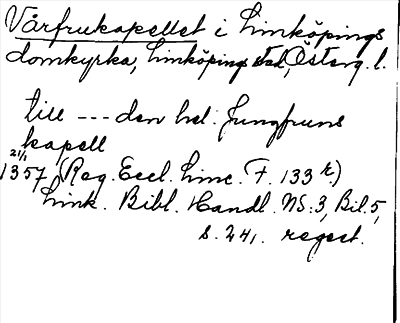 Vårfrukapellet i Linköpings
domkyrka, Linköpings stad, Österg. l.
till --- den hel. Jungfruns
kapell
21/1
1357 (Reg. Eccl. Linc. F. 133 r.)
Link. Bibl. Handl. NS:3, Bil. 5,
s. 241. regest.